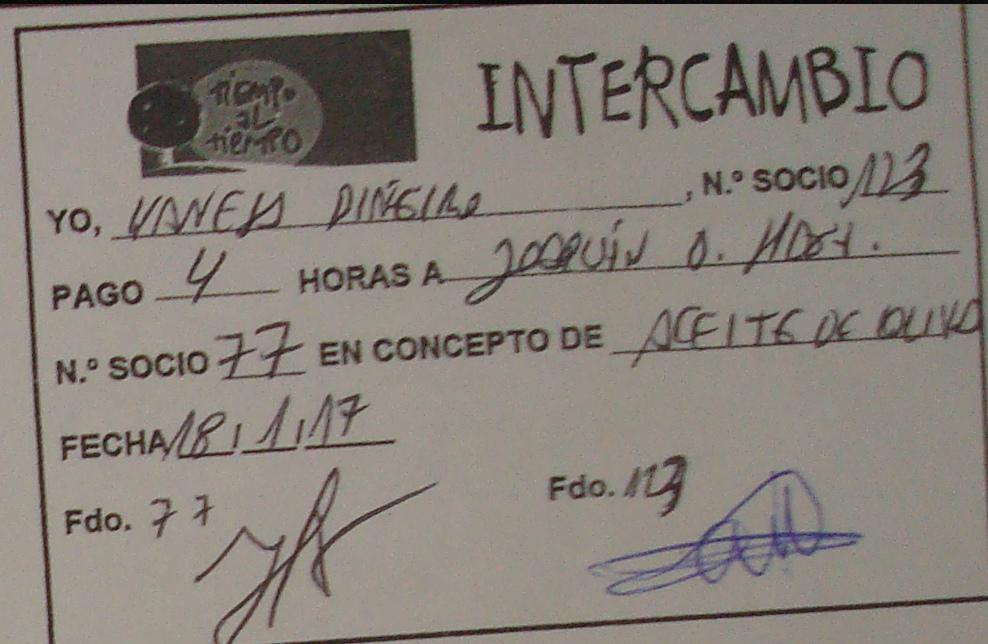 tiempo
al
tiempo
INTERCAMBIO
YO, VANESA PIÑEIRO, N.º SOCIO 123
PAGO 4 HORAS A JOAQUÍN O.
N.º SOCIO 77 EN CONCEPTO DE ACEITE DE OLIVA
FECHA 18/1/17
Fdo. 77
Fdo. 123